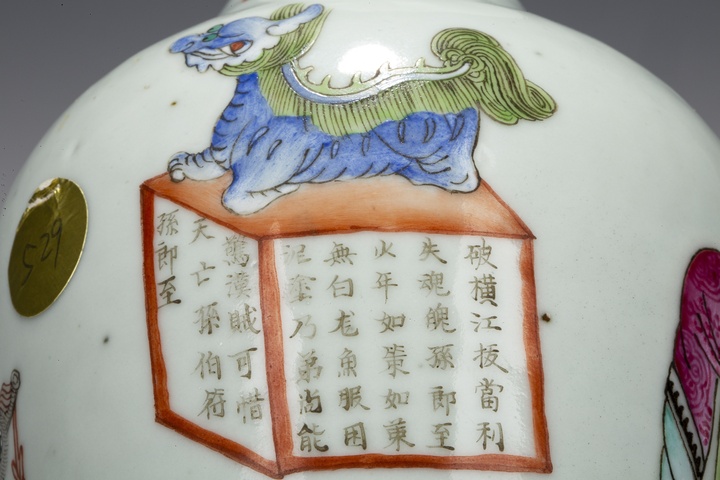 破橫江扳當利
失魂魄孫郎至
火年如如
無白龙魚服困
泥塗乃弟尚能
驚漢賊可惜
天亡孫伯符
孫郎至
529